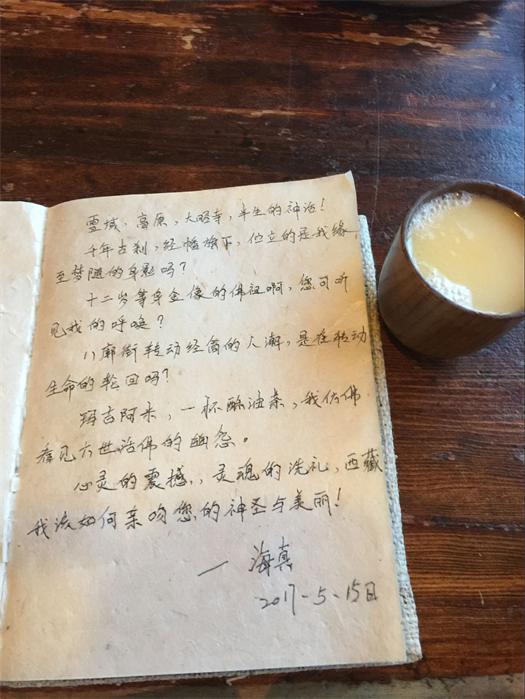 雪域、高原，大昭寺，半生的神往！
千年古刹，经幡旗下，伫立的是我缘
至梦随的身影吗？
十二岁等身金像的佛祖啊，您可听
见我的呼唤？
八廓街转动经筒的人潮，是在转动
生命的轮回吗？
玛吉阿米，一杯酥油茶，我仿佛
看见六世活佛的幽怨。
心灵的震撼，灵魂的洗礼，西藏
我该如何亲吻您的神圣与美丽！
— 海真
2017-5-15日